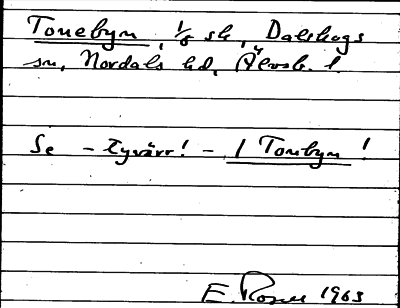 Tonebyn, 1/8 sk, Dalskogs
sn, Nordals hd, Älvsb. l.
Se - tyvärr! - 1 Tombyn!
E. Rosell 1963